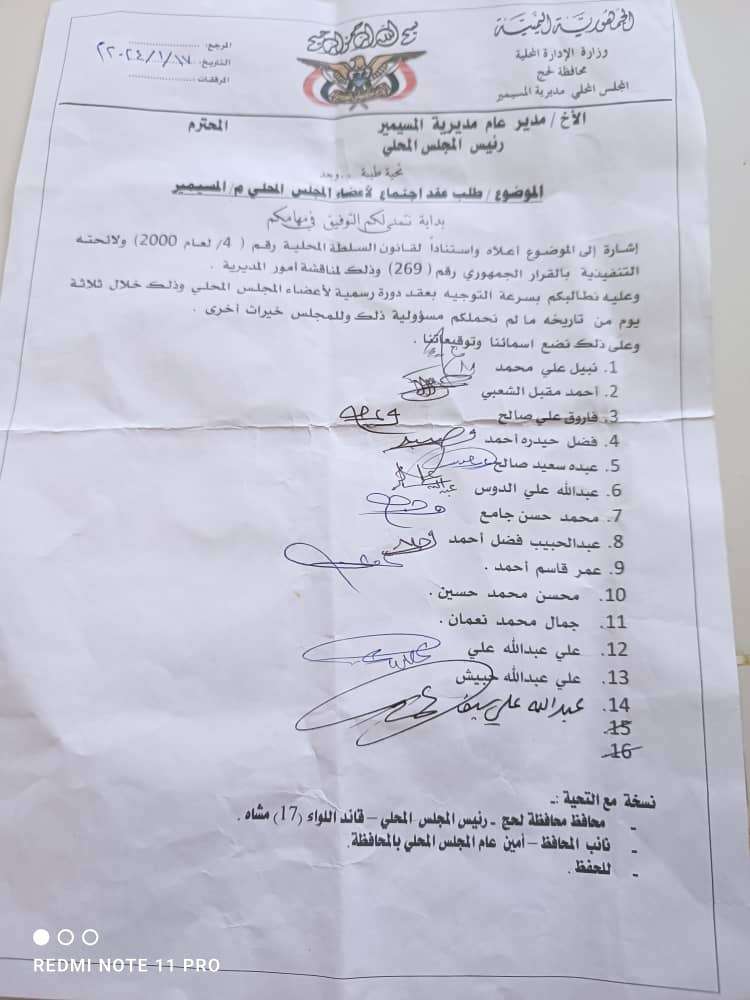 الجمهورية اليمنية
وزارة الإدارة المحلية
محافظة لحج
المجلس المحلي مديرية المسيمير
بسم الله الرحمن الرحيم
الرجع: ........................
التاريخ: ٢٠٢٤/١/١٧م
المرفقات: ........................
الأخ / مدير عام مديرية المسيمير المحترم
رئيس المجلس المحلي
تحية طيبة ... وبعد
الموضوع / طلب عقد اجتماع لأعضاء المجلس المحلي م/ المسيمير
بداية نتمنى لكم التوفيق في مهامكم
إشارة إلى الموضوع أعلاه واستناداً لقانون السلطة المحلية رقم ( 4/ لعام 2000) ولائحته
التنفيذية بالقرار الجمهوري رقم (269) وذلك لمناقشة أمور المديرية .
وعليه نطالبكم بسرعة التوجيه بعقد دورة رسمية لأعضاء المجلس المحلي وذلك خلال ثلاثة
يوم من تاريخه ما لم نحملكم مسؤولية ذلك وللمجلس خيرات أخرى .
وعلى ذلك نضع اسمائنا وتوقيعاتنا .
1. نبيل علي محمد
2. أحمد مقبل الشعبي
3. فاروق علي صالح
4. فضل حيدره أحمد
5. عبده سعيد صالح
6. عبدالله علي الدوس
7. محمد حسن جامع
8. عبدالحبيب فضل أحمد
9. عمر قاسم أحمد .
10. محسن محمد حسين .
11. جمال محمد نعمان .
12. علي عبدالله علي
13. علي عبدالله حبيش
14. عبدالله علي سيف
15
16
نسخة مع التحية :ـ
ـ محافظ محافظة لحج ـ رئيس المجلس المحلي – قائد اللواء (17) مشاه .
ـ نائب المحافظ – أمين عام المجلس المحلي بالمحافظة.
ـ للحفظ .
REDMI NOTE 11 PRO